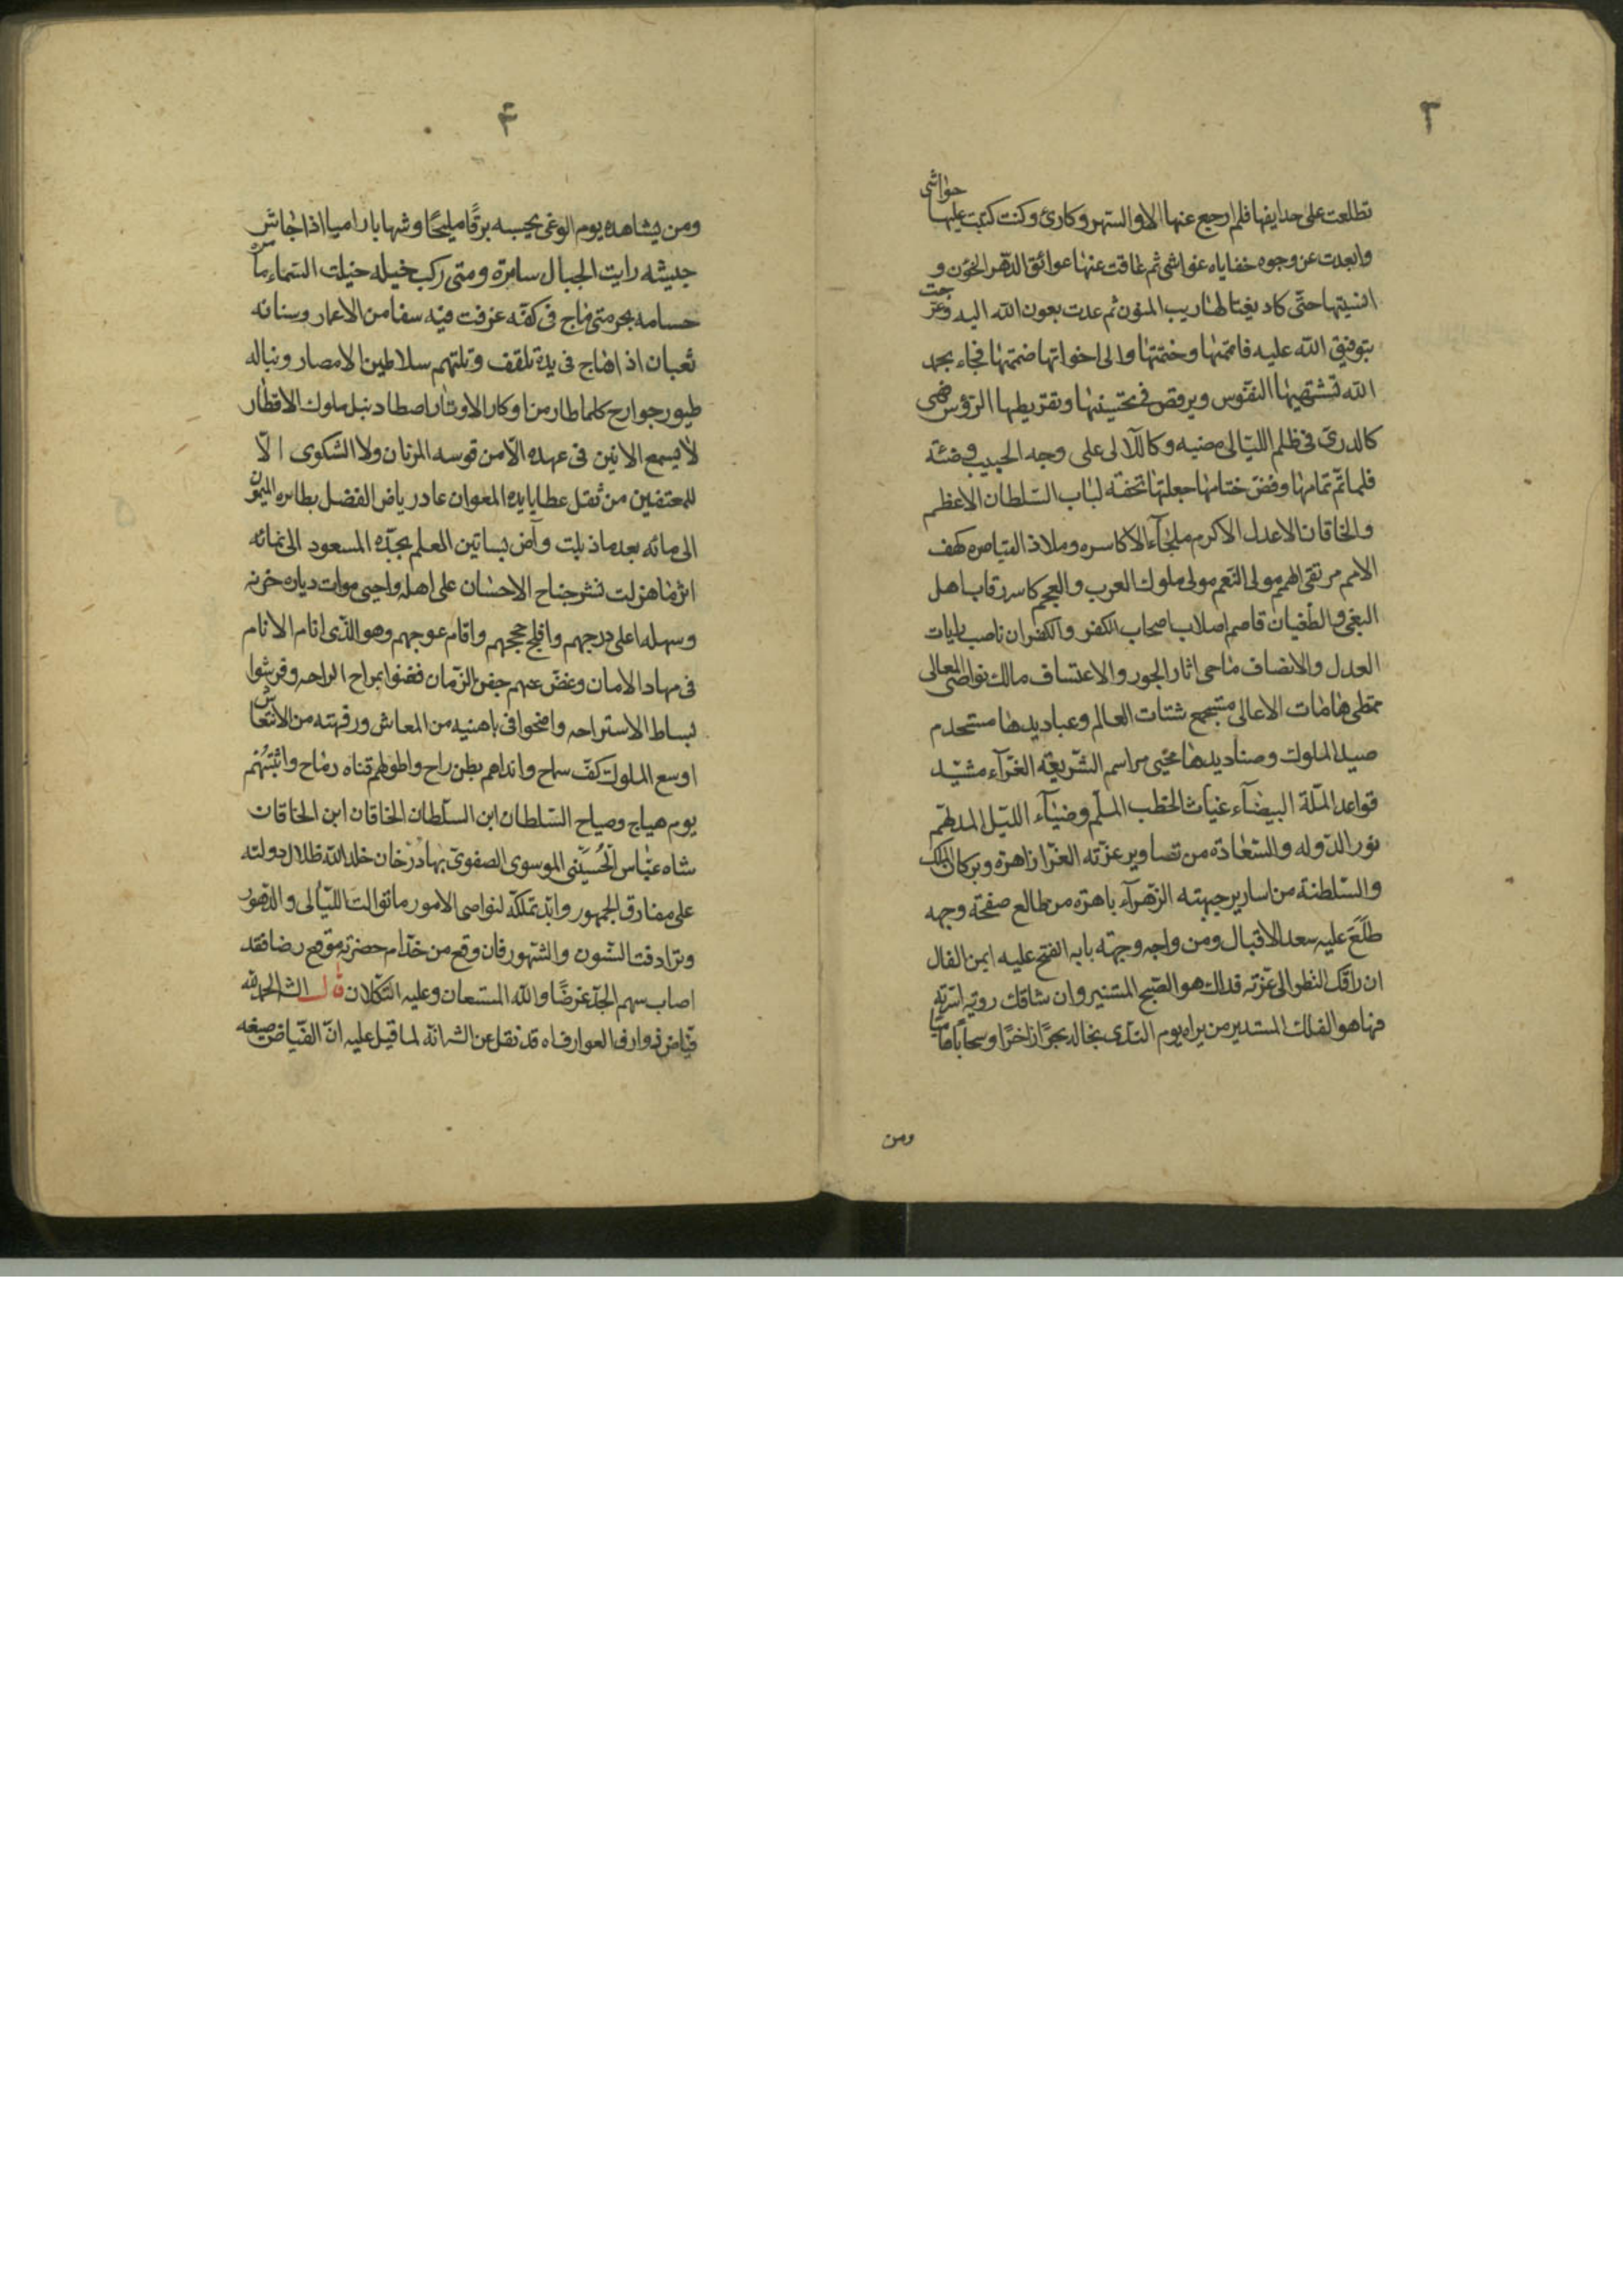 ٣
تطلعت على حدايقها فلم ارجع عنها الا والسهر وكارى وكنت كتبت عليها حواشى
وابعدت عن وجوه خفاياه غواشى ثم عاقت عنها عوائق الدهر الخؤن و
انسيتها حتى كاد يغتالها ريب المنون ثم عدت بعون الله اليه وعرجت
بتوفيق الله عليه فاتممتها وختمتها والى اخواتها ضممتها فجاء بحمد
الله تشتهيها النفوس ويرقص فى تحسينها وتقريظها الرؤس فهى
كالدرى فى ظلم الليالى مضيه وكاللآلى على وجه الحبيب وضئة
فلما تم تمامها وفض ختامها جعلتها تحفة لباب السلطان الاعظم
والخاقان الاعدل الاكرم ملجآء الاكاسره وملاذ القياصره كهف
الامم مرتقى الهمم مولى النعم مولى ملوك العرب والعجم كاسر رقاب اهل
البغى والطغيان قاصم اصلاب اصحاب الكفر والكفران ناصب رايات
العدل والانصاف ماحى اثار الجور والاعتساف مالك نواصى المعالى
ممتطى هامات الاعالى مستجمع شتات العالم وعباديدها مستخدم
صيد الملوك وصناديدها محيى مراسم الشريعة الغرآء مشيد
قواعد الملة البيضآء غياث الخطب الملم وضيآء الليل المدلهم
نور الدوله والسعادة من تصاوير غرته الغرا زاهرة وبركات الملك
والسلطنة من اسارير جبهته الزهرآء باهرة من مطالع صفحة وجهه
طلع عليه سعد الاقبال ومن واجه وجهته بابه الفتح عليه ايمن الفال
ان راقك النظر الى غرته فذاك هو الصبح المستنير وان شاقك روية اسرته
فها هو الفلك المستدير من يراه يوم الندى يخاله بحرًا زاخرًا وسحابًا هاميا
ومن
۴
ومن يشاهده يوم الوغى يحسبه برقًا مليحًا وشهابا راميا اذا جاش
جيشه رايت الجبال سائرة ومتى ركب خيله خيلت السماء مائره
حسامه بحر متى ماج فى كفه غرقت فيه سفا من الاعمار وسنانه
ثعبان اذا هاج فى يده تلقف وتلتهم سلاطين الامصار ونباله
طيور جوارح كلما طار من اوكار الاوتار اصطاد نبل ملوك الاقطار
لا يسمع الانين فى عهده الا من قوسه المرنان ولا الشكوى الا
للمعتفين من ثقل عطايا يده المعوان عاد رياض الفضل بطائره الميمون
الى مائه بعد ما ذبلت وآض بساتين العلم بجده المسعود الى نمائه
اثر ما هزلت نشر جناح الاحسان على اهله واحيى موات دياره حزنه
وسهله اعلى درجهم وافلج حججهم واقام عوجهم وهو الذى انام الانام
فى مهاد الامان وغض عنهم جفن الزمان فغنوا بمراح الراحه وفرشوا
بساط الاستراحه واضحوا فى باهنيه من المعاش ورفهته من الانتعاش
اوسع الملوك كف سماح وانداهم بطن راح واطولهم قناه رماح واثبتهم
يوم هياج وصياح السلطان ابن السلطان الخاقان ابن الخاقان
شاه عباس الحسينى الموسوى الصفوى بهادر خان خلد الله ظلال دولته
على مفارق الجمهور وابد تملكه لنواصى الامور ما توالت الليالى والدهور
وترادفت السنون والشهور فان وقع من خدام حضرته موقع رضا فقد
اصاب سهم الجد غرضًا والله المستعان وعليه التكلان قال الش الحمد لله
فياض ذوارف العوارف اه قد نقل عن الش انه لما قيل عليه ان الفياض صيغه